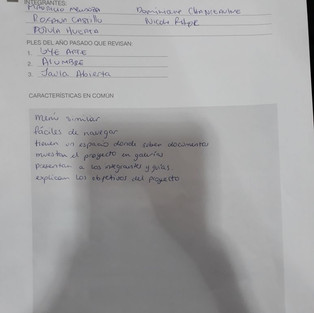 INTEGRANTES:
Mendoza
Roxana Castillo
Huerta
PLES DEL AÑO PASADO QUE REVISAN:
1. GYE ARTE
2. ALUMBRE
3. Jaula Abierta
CARACTERÍSTICAS EN COMÚN
Menu similar
fáciles de navegar
tienen un espacio donde suben documentos
muestran el proyecto en galerías
presentan a los integrantes y guías
explican los objetivos del proyecto